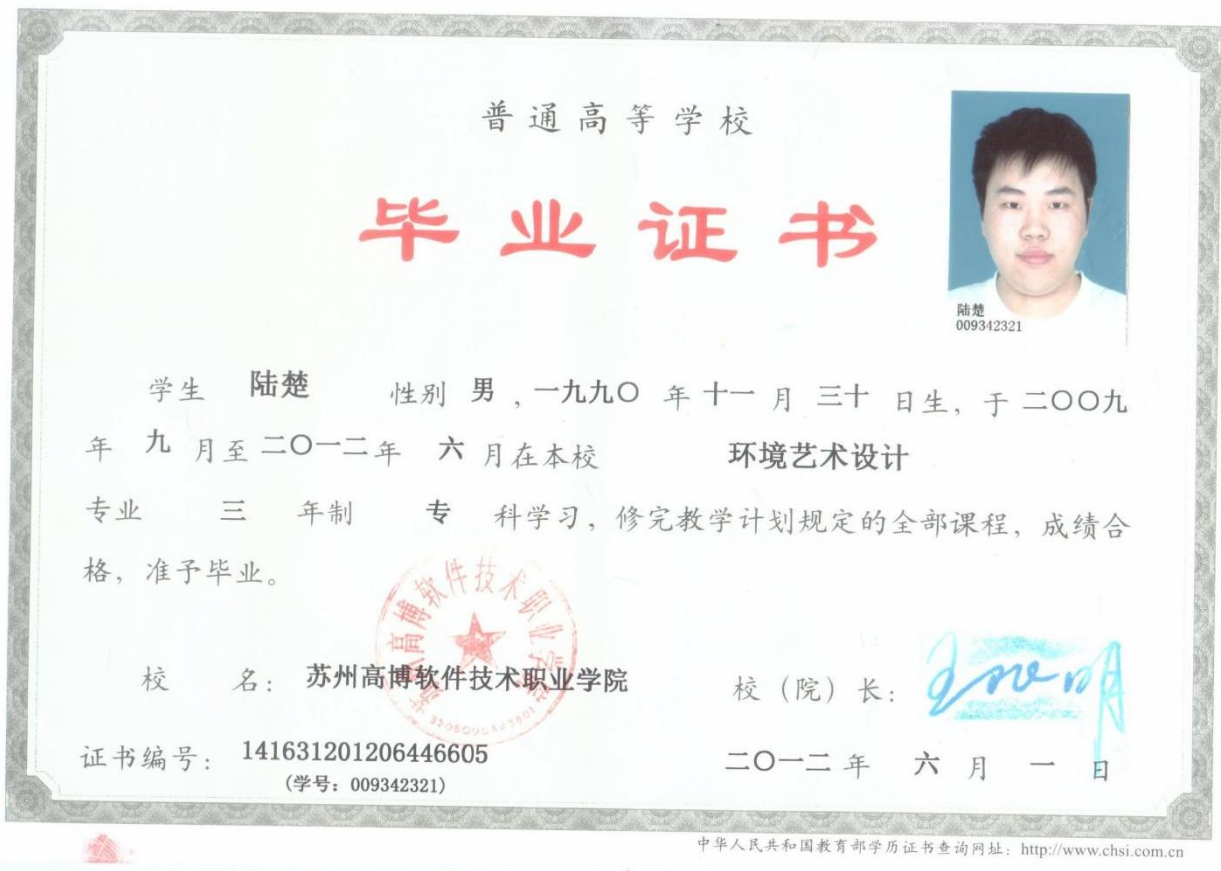 普通高等学校
毕业证书
陆楚
009342321
学生 陆楚 性别 男，一九九〇 年 十一 月 三十 日生，于 二〇〇九
年 九 月至 二〇一二年 六 月在本校 环境艺术设计
专业 三 年制 专 科学习，修完教学计划规定的全部课程，成绩合
格，准予毕业。
校 名： 苏州高博软件技术职业学院
校（院）长：
证书编号： 141631201206446605
（学号：009342321）
二〇一二 年 六 月 一 日
中华人民共和国教育部学历证书查询网址：http://www.chsi.com.cn